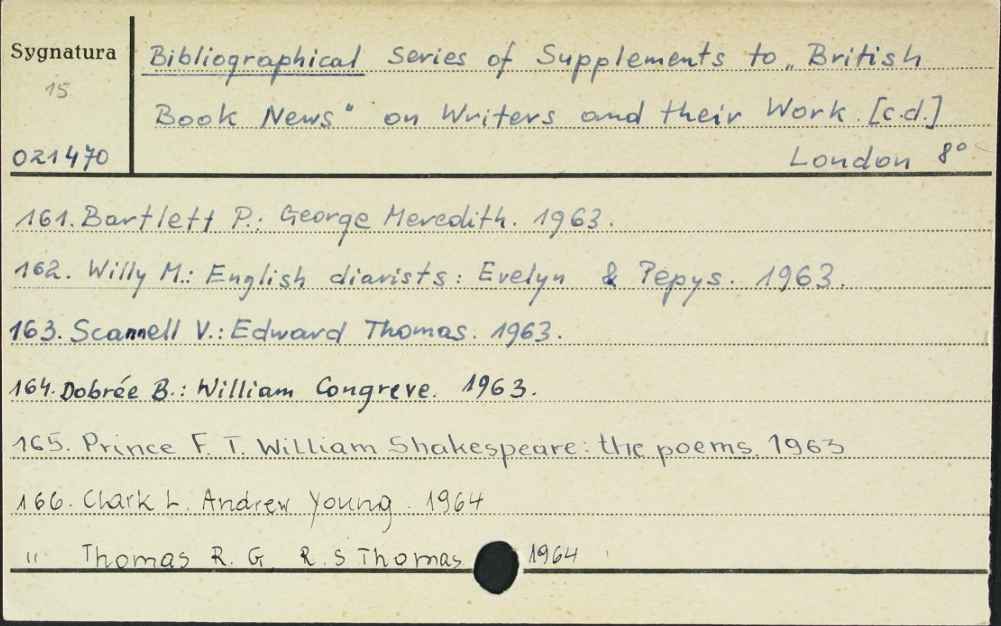 Sygnatura
15
021470
Bibliographical Series of Supplements to „British
Book News" on Writers and their Work. [c.d.]
London 8°
161. Bartlett P.: George Meredith. 1963.
162. Willy M.: English diarists: Evelyn & Pepys. 1963.
163. Scannell V.: Edward Thomas. 1963.
164. Dobrée B.: William Congreve. 1963.
165. Prince F. T. William Shakespeare: the poems. 1963
166. Clark L. Andrew Young. 1964
" Thomas R. G R. S Thomas 1964